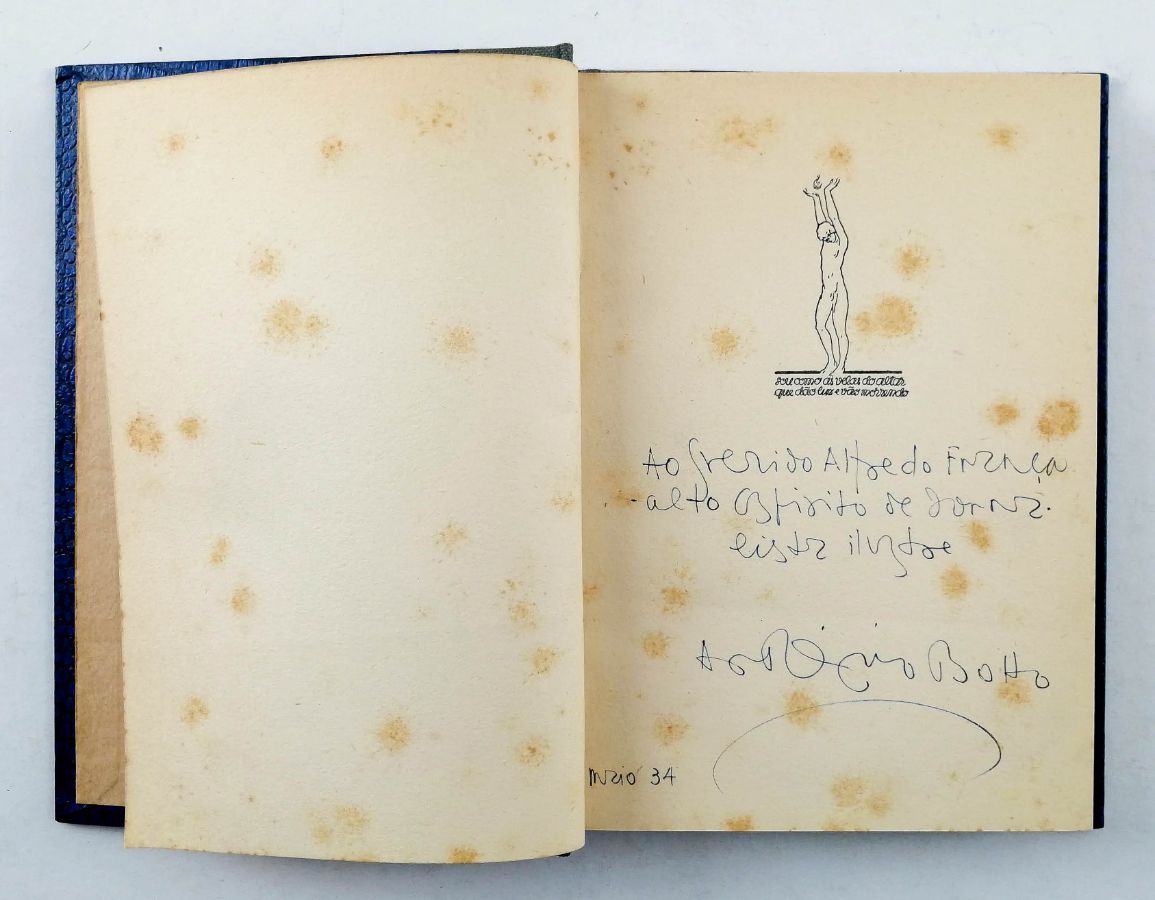 sou como as velas do altar
que dão luz e vão morrendo
Ao querido Alfredo França
alto espirito de Jorna-
lista ilustre
António Botto
Maio 34